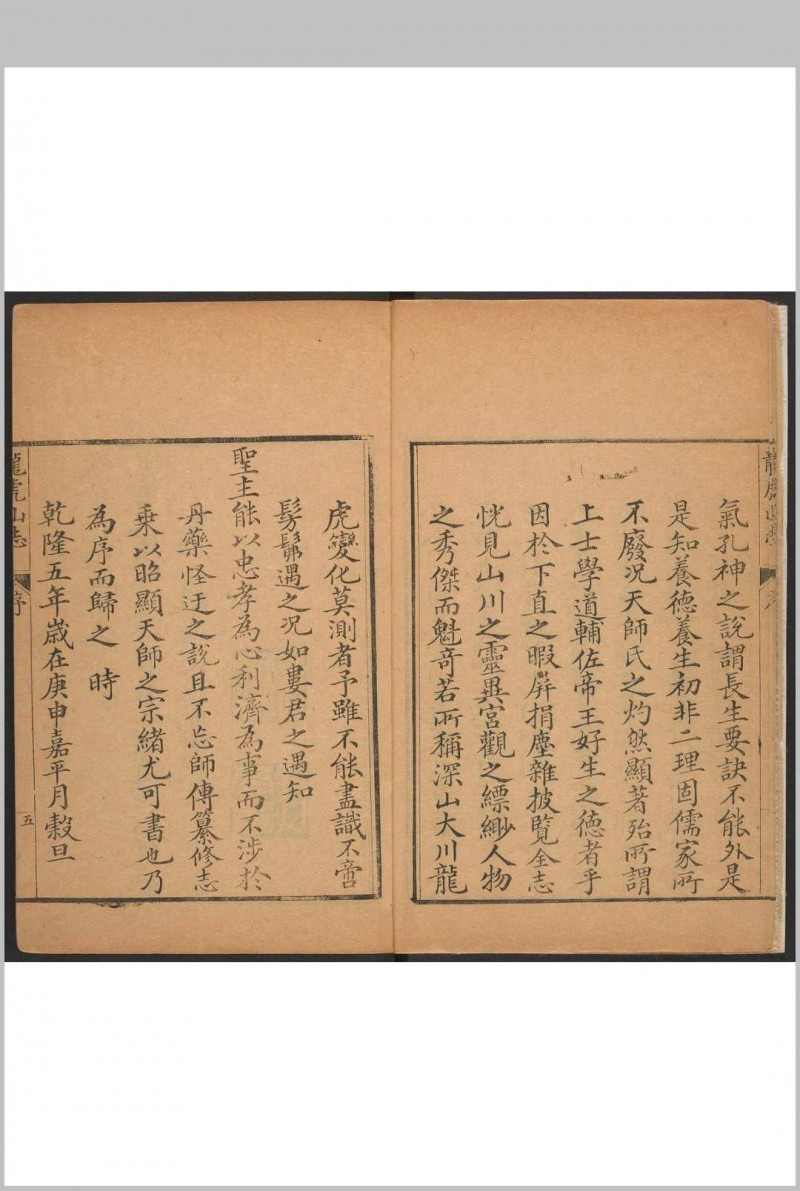 氣孔神之說謂長生要訣不能外是
是知養德養生初非二理固儒家所
不廢況天師氏之灼然顯著殆所謂
上士學道輔佐帝王好生之德者乎
因於下直之暇屏捐塵雜披覽全志
恍見山川之靈異宮觀之縹緲人物
之秀傑而魁奇若所稱深山大川龍
虎變化莫測者予雖不能盡識不啻
髣髴遇之況如婁君之遇知
聖主能以忠孝為心利濟為事而不涉於
丹藥怪迂之說且不忘師傳纂修志
乘以昭顯天師之宗緒尤可書也乃
為序而歸之 時
乾隆五年歲在庚申嘉平月穀旦
龍虎山志 序 五